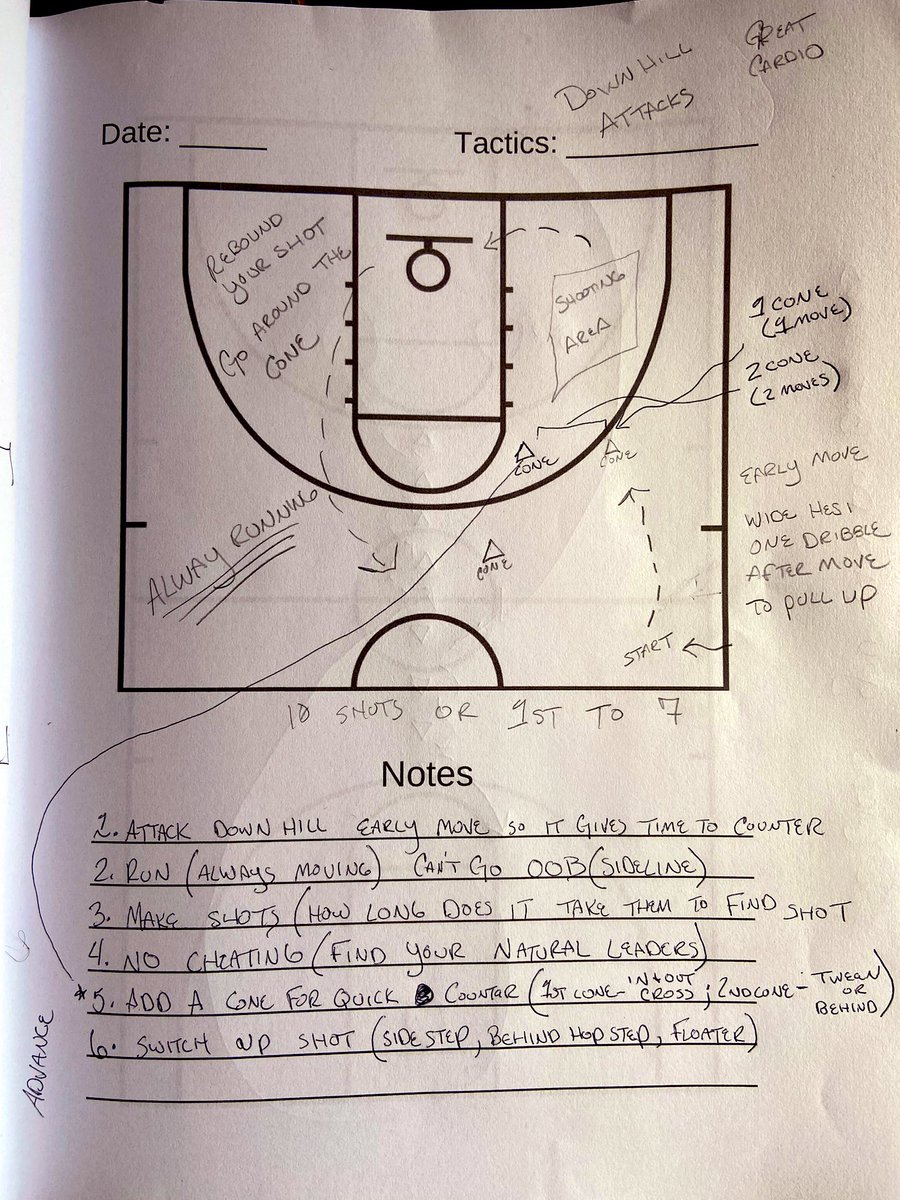 GREAT
CARDIO
DOWN HILL
ATTACKS
Date:
Tactics:
REBOUND
YOUR SHOT
GO AROUND THE
CONE
SHOOTING
AREA
1 CONE
(1 MOVE)
2 CONE
(2 MOVES)
CONE
CONE
EARLY MOVE
WIDE HESI
ONE DRIBBLE
AFTER MOVE
TO PULL UP
ALWAY RUNNING
CONE
START
10 SHOTS OR 1ST TO 7
Notes
1. ATTACK DOWN HILL EARLY MOVE SO IT GIVES TIME TO COUNTER
2. RUN (ALWAYS MOVING) CAN'T GO OOB (SIDELINE)
3. MAKE SHOTS (HOW LONG DOES IT TAKE THEM TO FIND SHOT
4. NO CHEATING (FIND YOUR NATURAL LEADERS)
*5. ADD A CONE FOR QUICK COUNTER (1ST CONE- IN+OUT CROSS; 2ND CONE- TWEAN OR BEHIND)
6. SWITCH UP SHOT (SIDE STEP, BEHIND HOP STEP, FLOATER)
ADVANCE